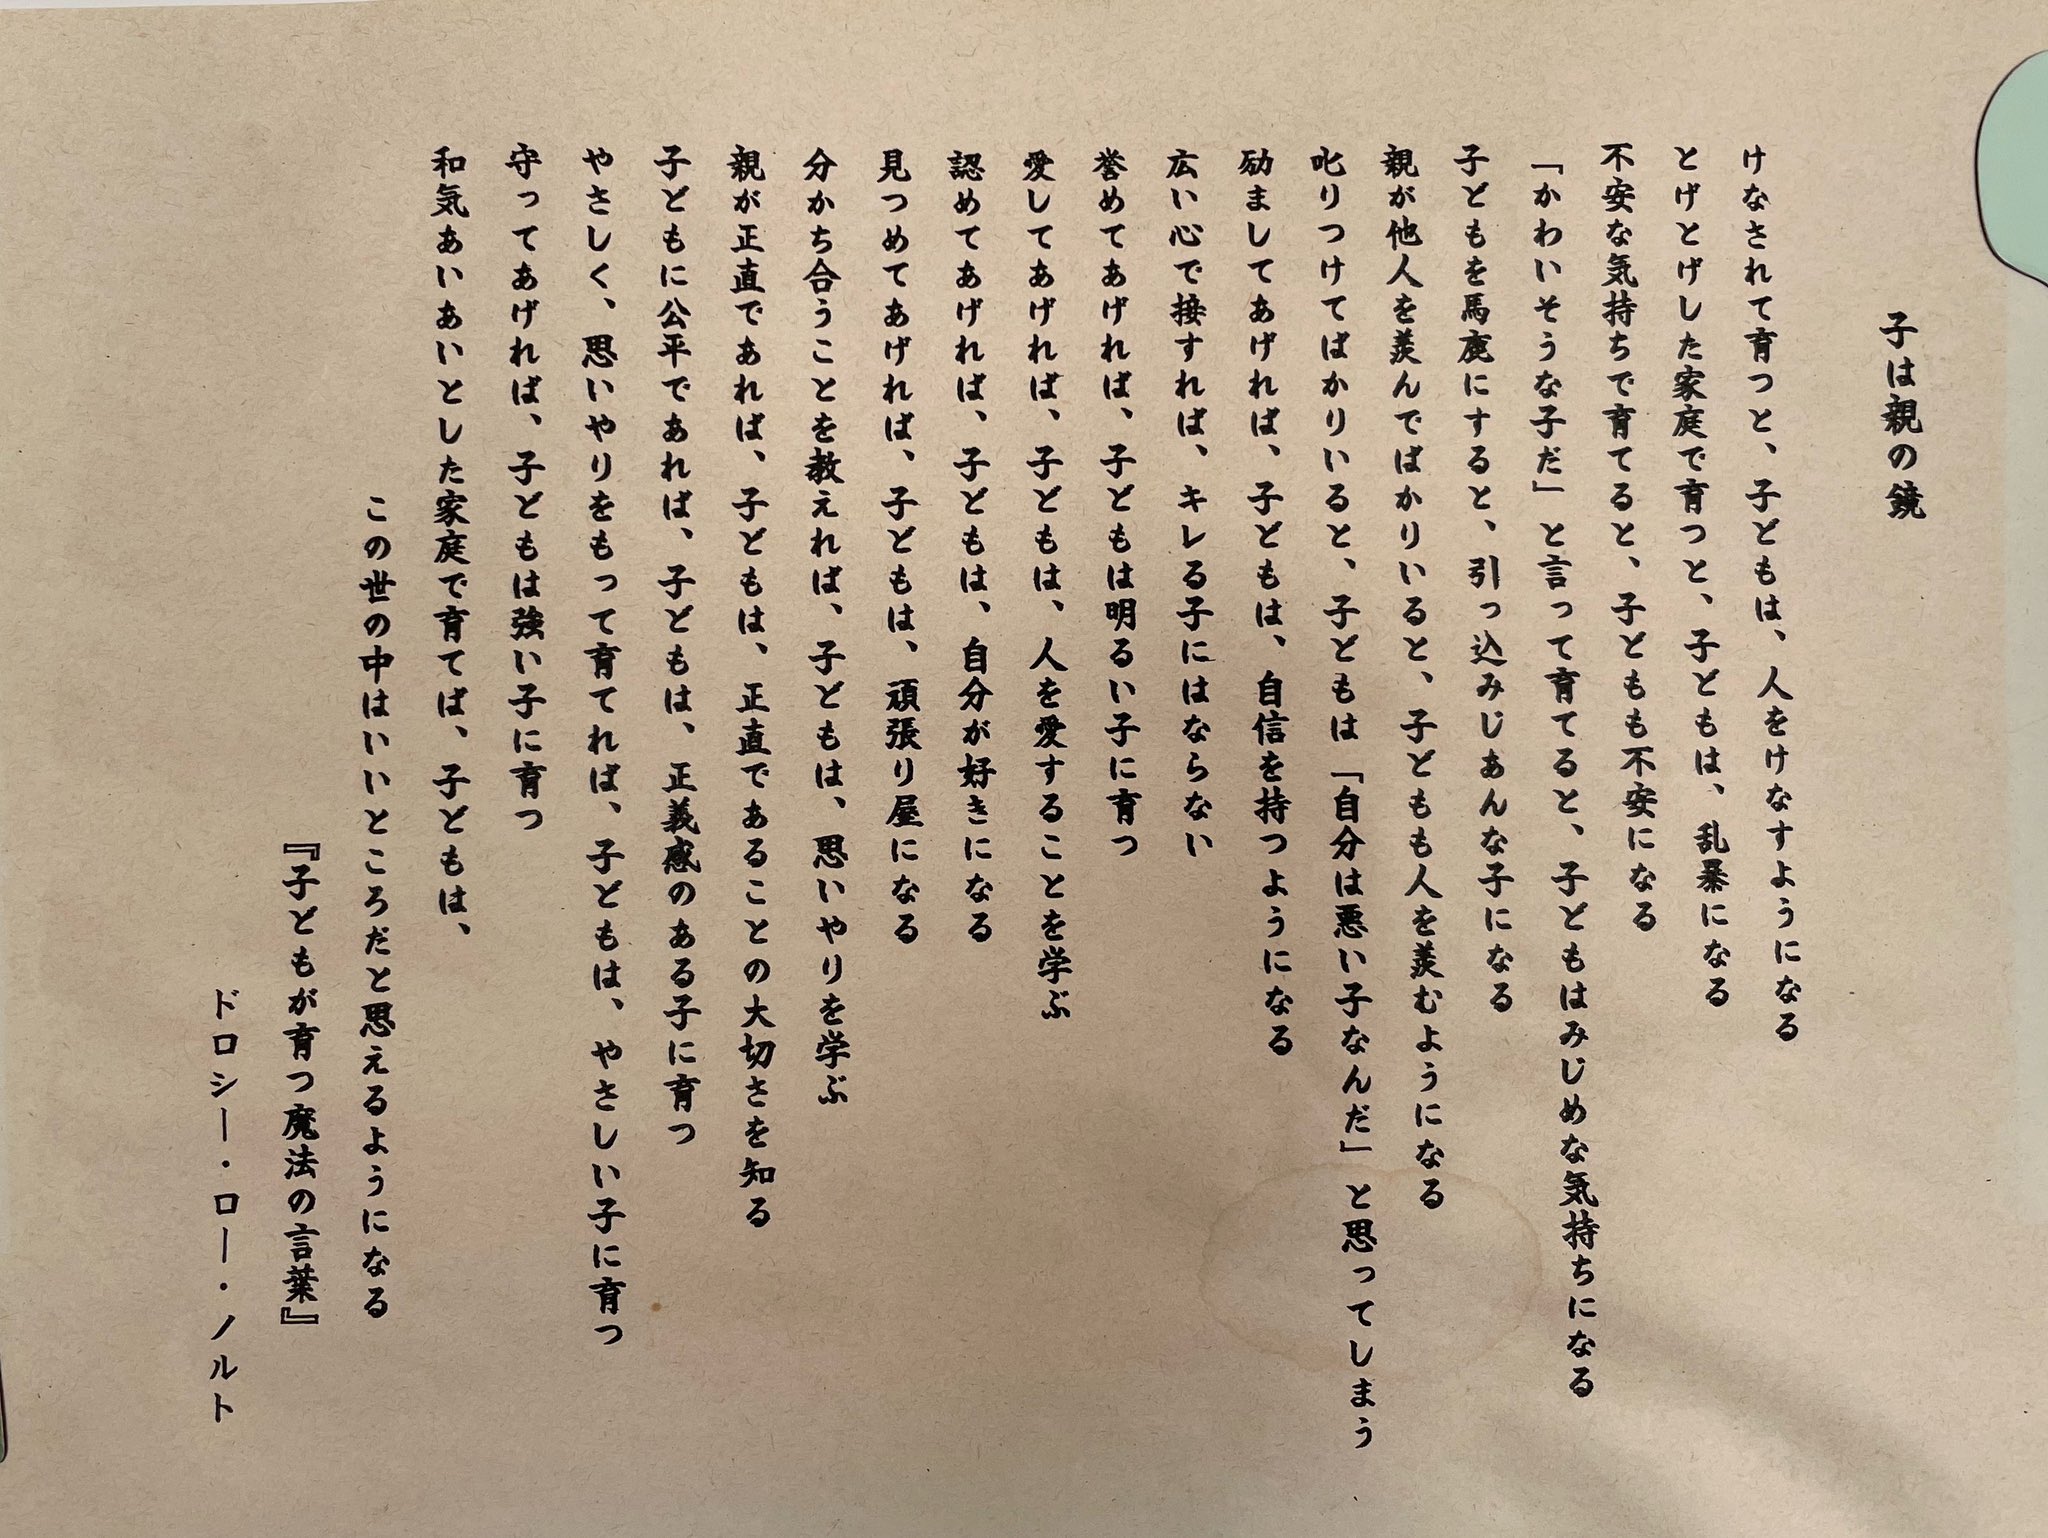 子は親の鏡
けなされて育つと、子どもは、人をけなすようになる
とげとげした家庭で育つと、子どもは、乱暴になる
不安な気持ちで育てると、子どもも不安になる
「かわいそうな子だ」と言って育てると、子どもはみじめな気持ちになる
子どもを馬鹿にすると、引っ込みじあんな子になる
親が他人を羨んでばかりいると、子どもも人を羨むようになる
叱りつけてばかりいると、子どもは「自分は悪い子なんだ」と思ってしまう
励ましてあげれば、子どもは、自信を持つようになる
広い心で接すれば、キレる子にはならない
誉めてあげれば、子どもは明るい子に育つ
愛してあげれば、子どもは、人を愛することを学ぶ
認めてあげれば、子どもは、自分が好きになる
見つめてあげれば、子どもは、頑張り屋になる
分かち合うことを教えれば、子どもは、思いやりを学ぶ
親が正直であれば、子どもは、正直であることの大切さを知る
子どもに公平であれば、子どもは、正義感のある子に育つ
やさしく、思いやりをもって育てれば、子どもは、やさしい子に育つ
守ってあげれば、子どもは強い子に育つ
和気あいあいとした家庭で育てば、子どもは、
この世の中はいいところだと思えるようになる
『子どもが育つ魔法の言葉』
ドロシー・ロー・ノルト